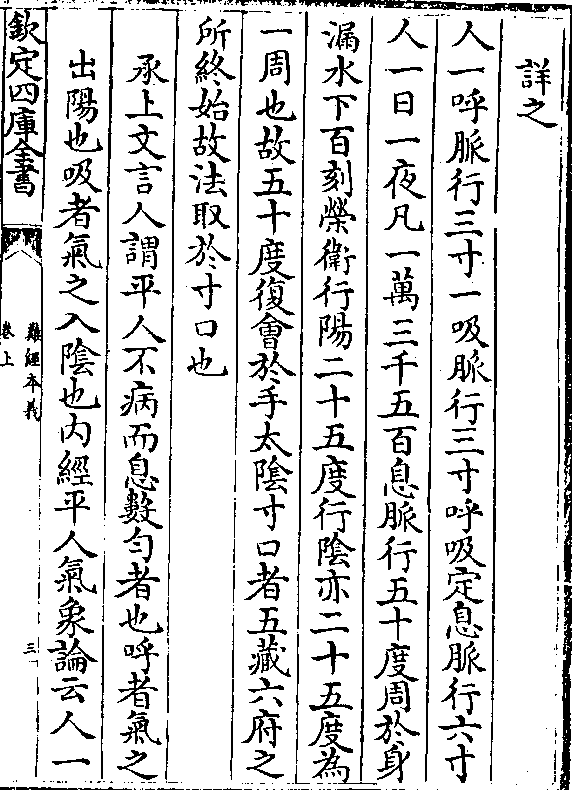 詳之
人一呼脈行三寸一吸脈行三寸呼吸定息脈行六寸
人一日一夜凡一萬三千五百息脈行五十度周於身
漏水下百刻榮衛行陽二十五度行陰亦二十五度為
一周也故五十度復會於手太陰寸口者五藏六府之
所終始故法取於寸口也
承上文言人謂平人不病而息數勻者也呼者氣之
出陽也吸者氣之入陰也内經平人氣象論云人一
欽定四庫全書
難經本義
卷上
三